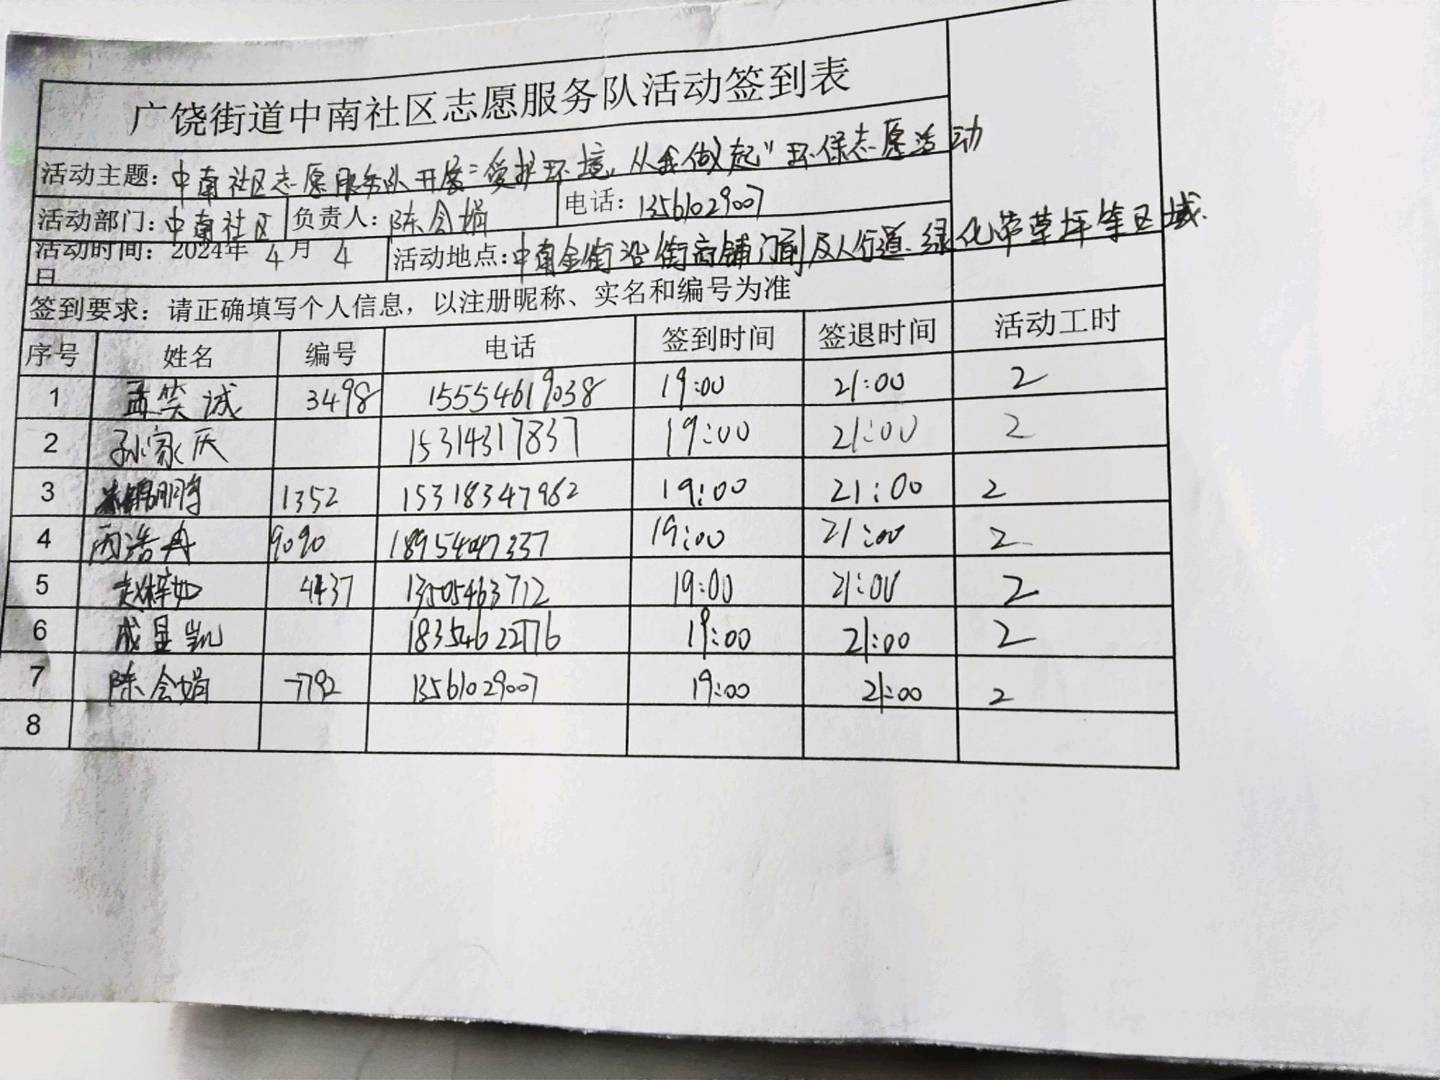 广饶街道中南社区志愿服务队活动签到表
活动主题：中南社区志愿服务队开展"爱护环境，从我做起"环保志愿活动
活动部门：中南社区 负责人：陈会娟 电话：13561029007
活动时间：2024年 4月 4日 活动地点：中南金街沿街商铺门前及人行道、绿化带草坪等区域.
签到要求：请正确填写个人信息，以注册昵称、实名和编号为准
序号 姓名 编号 电话 签到时间 签退时间 活动工时
1 孟笑诚 3498 15554619038 19:00 21:00 2
2 孙家庆 15314317837 19:00 21:00 2
3 1352 15318347962 19:00 21:00 2
4 9090 19:00 21:00 2
5 赵梓如 4437 13505463712 19:00 21:00 2
6 成昱凯 18354622776 19:00 21:00 2
7 陈会娟 7792 13561029007 19:00 21:00 2
8